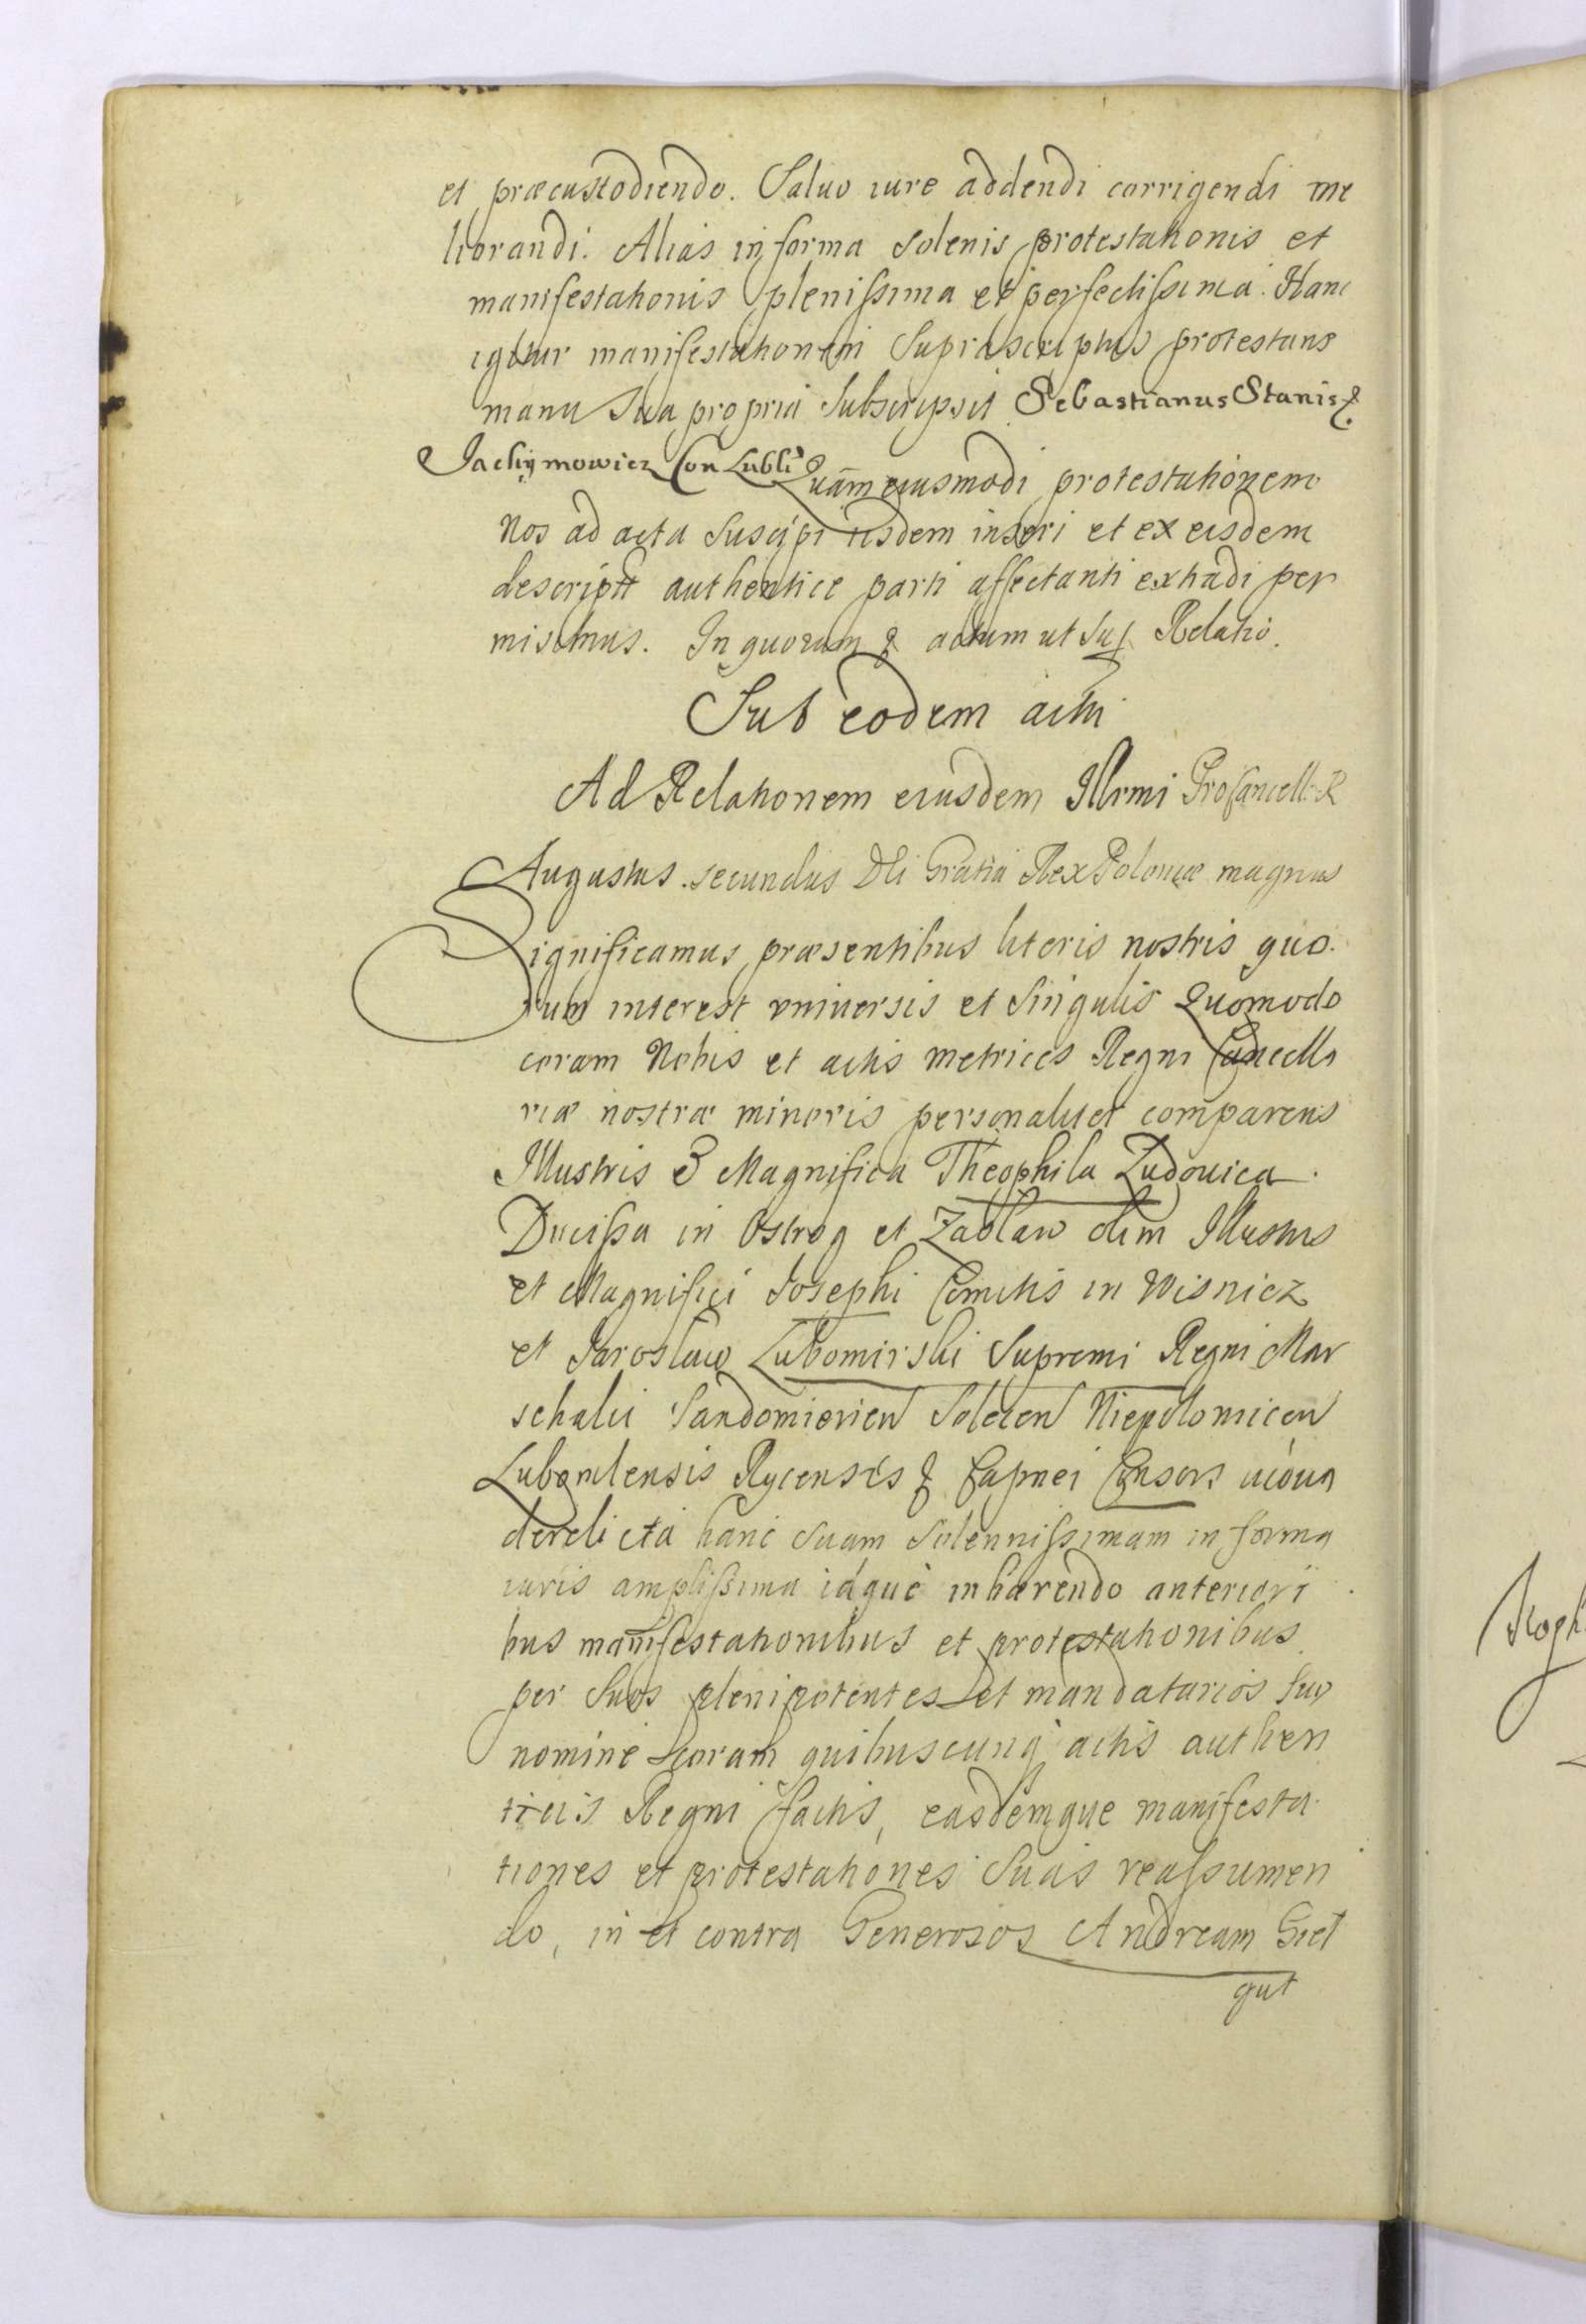 et præcustodiendo. Saluo iure addendi corrigendi me
liorandi. Alias in forma solenis protestationis et
manifestationis plenissima et perfectissima. Hanc
igitur manifestationem suprascriptus protestans
manu sua propria subscripsit Sebastianus Stanis
Jachymowicz Con Lubli Quam eiusmodi protestationem
Nos ad acta suscipi iisdem inseri et ex eisdem
descriptu authentice parti affectanti extradi per
misimus. In quorum & actum ut sup Relatio.
Sub eodem actu
Ad Relationem eiusdem Illrmi ProCancell: R
Augustus secundus Dei Gratia Rex Poloniæ magnus
Significamus præsentibus literis nostris quo.
rum interest vniuersis et singulis Quomodo
coram Nobis et actis metrices Regni Cancella
riæ nostræ minoris personaliter comparens
Illustris & Magnifica Theophila Ludouica
Ducissa in Ostrog et Zaslaw olim Illustris
et Magnifici Josephi Comitis in Wisnicz
et Jaroslaw Lubomirski Supremi Regni Mar
schalci Sandomirien Solecen Niepolomicen
Lubomlensis Rycensis & Capnei Consors vidua
derelicta hanc suam solennissimam in forma
iuris amplissima idque inhærendo anteriori
bus manifestationibus et protestationibus
per suos plenipotentes et mandatarios suo
nomine coram quibuscunq actis authen
ticis Regni factis, easdemque manifesta
tiones et protestationes suas reassumen
do, in et contra Generosos Andream Giet
gut